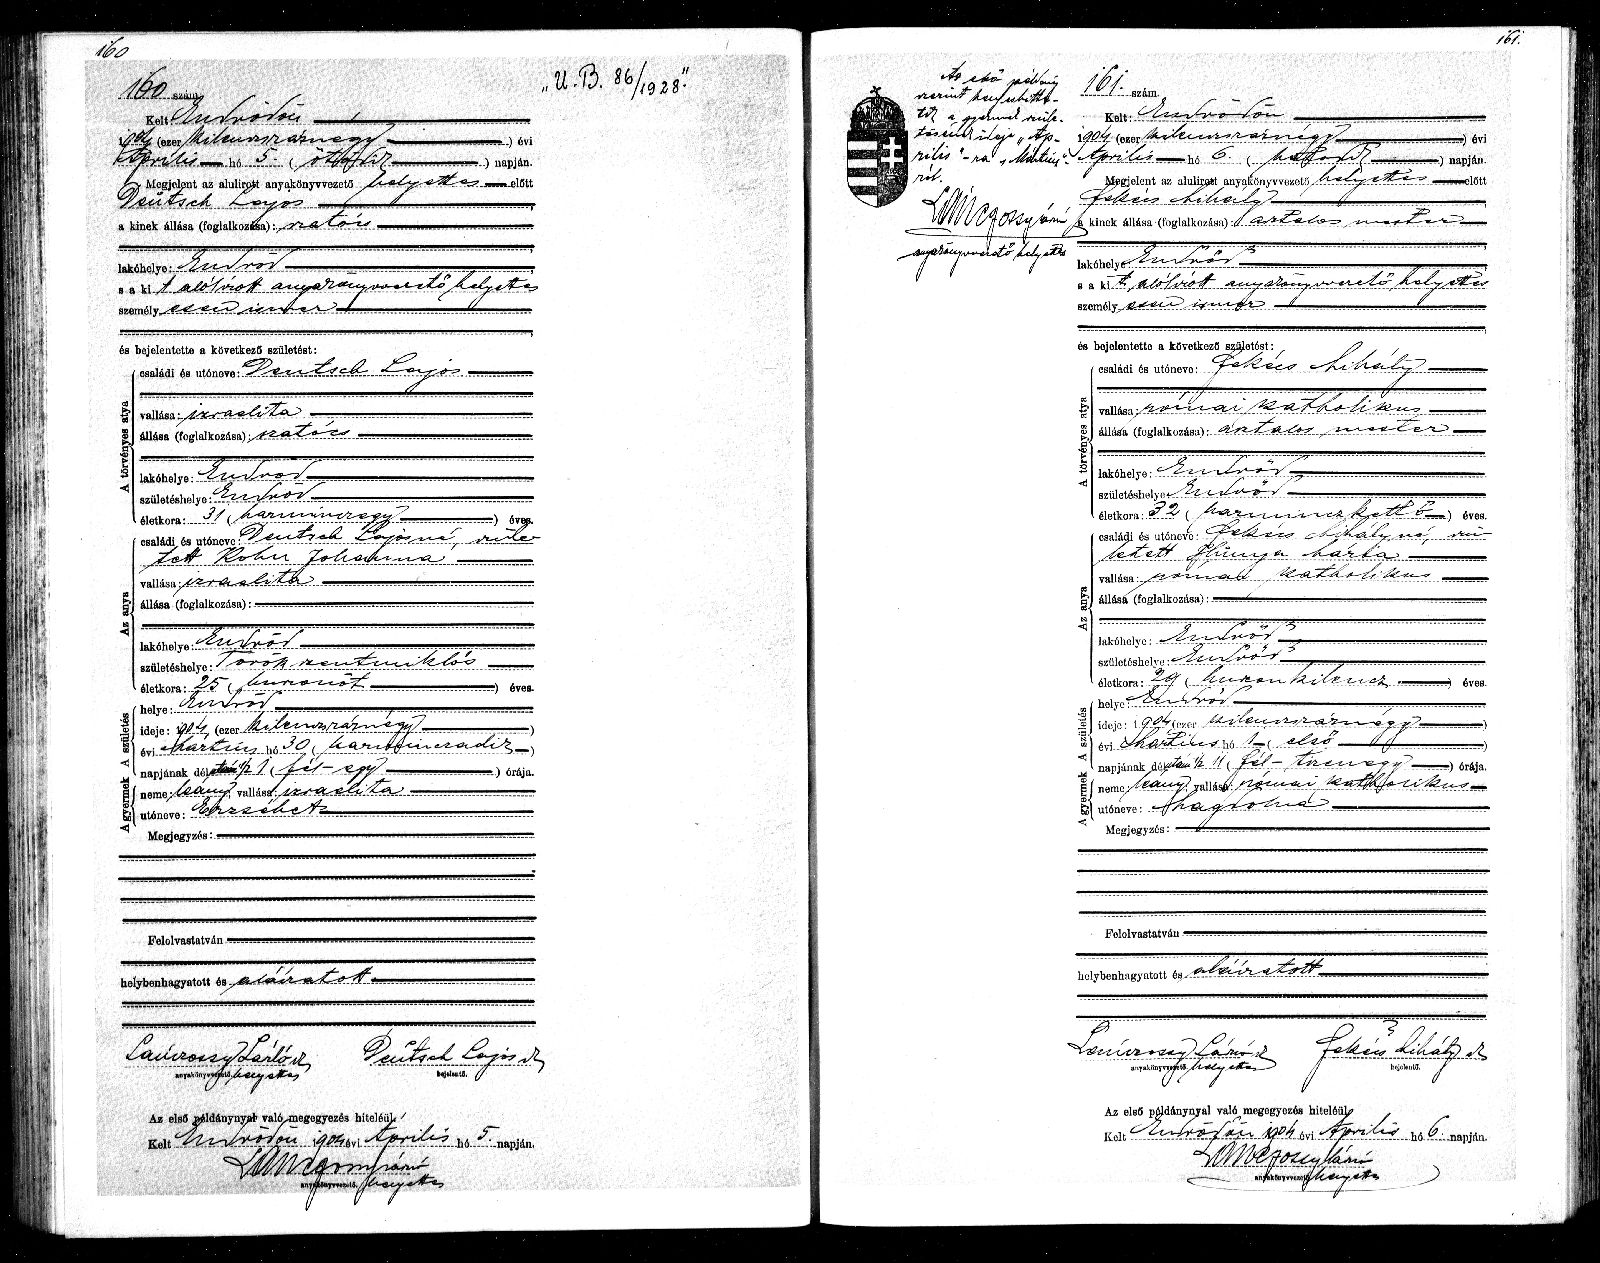 160
160 szám.
„U. B. 86/1928.”
Kelt: Endrődön
1904 (ezer kilenczszáznégy) évi
Április hó 5. (ötödik) napján.
Megjelent az alulirott anyakönyvvezető helyettes előtt
Deutsch Lajos
a kinek állása (foglalkozása): szatócs
lakóhelye: Endrőd
s a kit alólirott anyakönyvvezető helyettes
személyesen ismer
és bejelentette a következő születést:
A törvényes atya
családi és utóneve: Deutsch Lajos
vallása: izraelita
állása (foglalkozása): szatócs
lakóhelye: Endrőd
születéshelye: Endrőd
életkora: 31 (harminczegy) éves.
Az anya
családi és utóneve: Deutsch Lajosné, szüle-
tett Kohn Johanna
vallása: izraelita
állása (foglalkozása):
lakóhelye: Endrőd
születéshelye: Törökszentmiklós
életkora: 25 (huszonöt) éves.
A gyermek A születés
helye: Endrőd
ideje: 1904, (ezer kilenczszáznégy)
évi Martius hó 30 (harminczadik)
napjának délután ½ 1 (fél-egy) órája.
neme: leány, vallása: izraelita
utóneve: Erzsébet
Megjegyzés:
Felolvastatván
helybenhagyatott és aláiratott
Deutsch Lajos sk
anyakönyvvezető. helyettes
bejelentő.
Az első példánynyal való megegyezés hiteléül
Kelt Endrődön 1904 évi Április hó 5. napján.
anyakönyvvezető. helyettes
161.
Az első példány
szerint
a gyermek szüle-
tésének ideje „Áp-
rilis”-ra „Mártius”-
ról.
anyakönyvvezető helyettes
161. szám.
Kelt: Endrődön
1904 (ezer kilenczszáznégy) évi
Április hó 6. (hatodik) napján.
Megjelent az alulirott anyakönyvvezető helyettes előtt
Fekécs Mihály
a kinek állása (foglalkozása): asztalos mester
lakóhelye: Endrőd
s a kit alólirott anyakönyvvezető helyettes
személyesen ismer
és bejelentette a következő születést:
A törvényes atya
családi és utóneve: Fekécs Mihály
vallása: római katholikus
állása (foglalkozása): asztalos mester
lakóhelye: Endrőd
születéshelye: Endrőd
életkora: 32 (harminczkettő) éves.
Az anya
családi és utóneve: Fekécs Mihályné, szü-
letett Hunya Márta
vallása: római katholikus
állása (foglalkozása):
lakóhelye: Endrőd
születéshelye: Endrőd
életkora: 29 (huszonkilencz) éves.
A gyermek A születés
helye: Endrőd
ideje: 1904 (ezer kilenczszáznégy)
évi Martius hó 1 (első)
napjának délután ½ 11 (fél-tizenegy) órája.
neme: leány, vallása: római katholikus
utóneve: Magdolna
Megjegyzés:
Felolvastatván
helybenhagyatott és aláiratott
Fekécs Mihály sk
anyakönyvvezető. helyettes
bejelentő.
Az első példánynyal való megegyezés hiteléül
Kelt Endrődön 1904 évi Április hó 6. napján.
anyakönyvvezető. helyettes